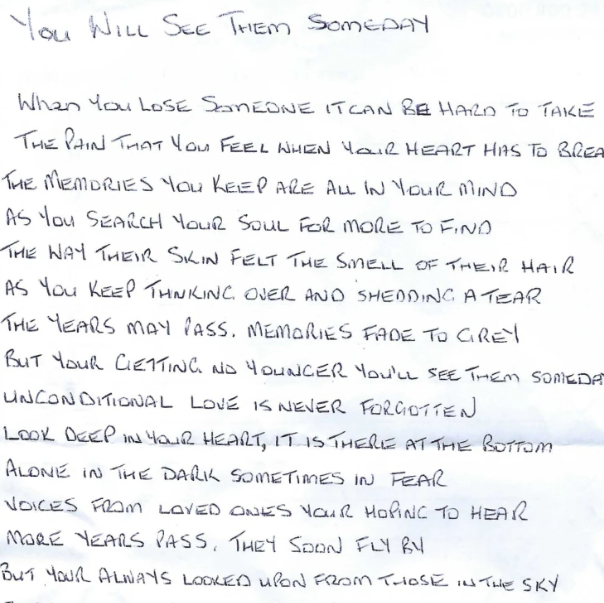 You Will See Them Someday
When You Lose Someone it can be hard to take
The Pain that you feel when your heart has to brea
The memories you keep are all in your mind
As you search your soul for more to find
The way their skin felt the smell of their hair
As you keep thinking over and shedding a tear
The years may pass. memories fade to grey
But your getting no younger you'll see them someda
Unconditional love is never forgotten
Look deep in your heart, it is there at the bottom
Alone in the dark sometimes in fear
Voices from loved ones your hoping to hear
More years pass. they soon fly by
But your always looked upon from those in the sky